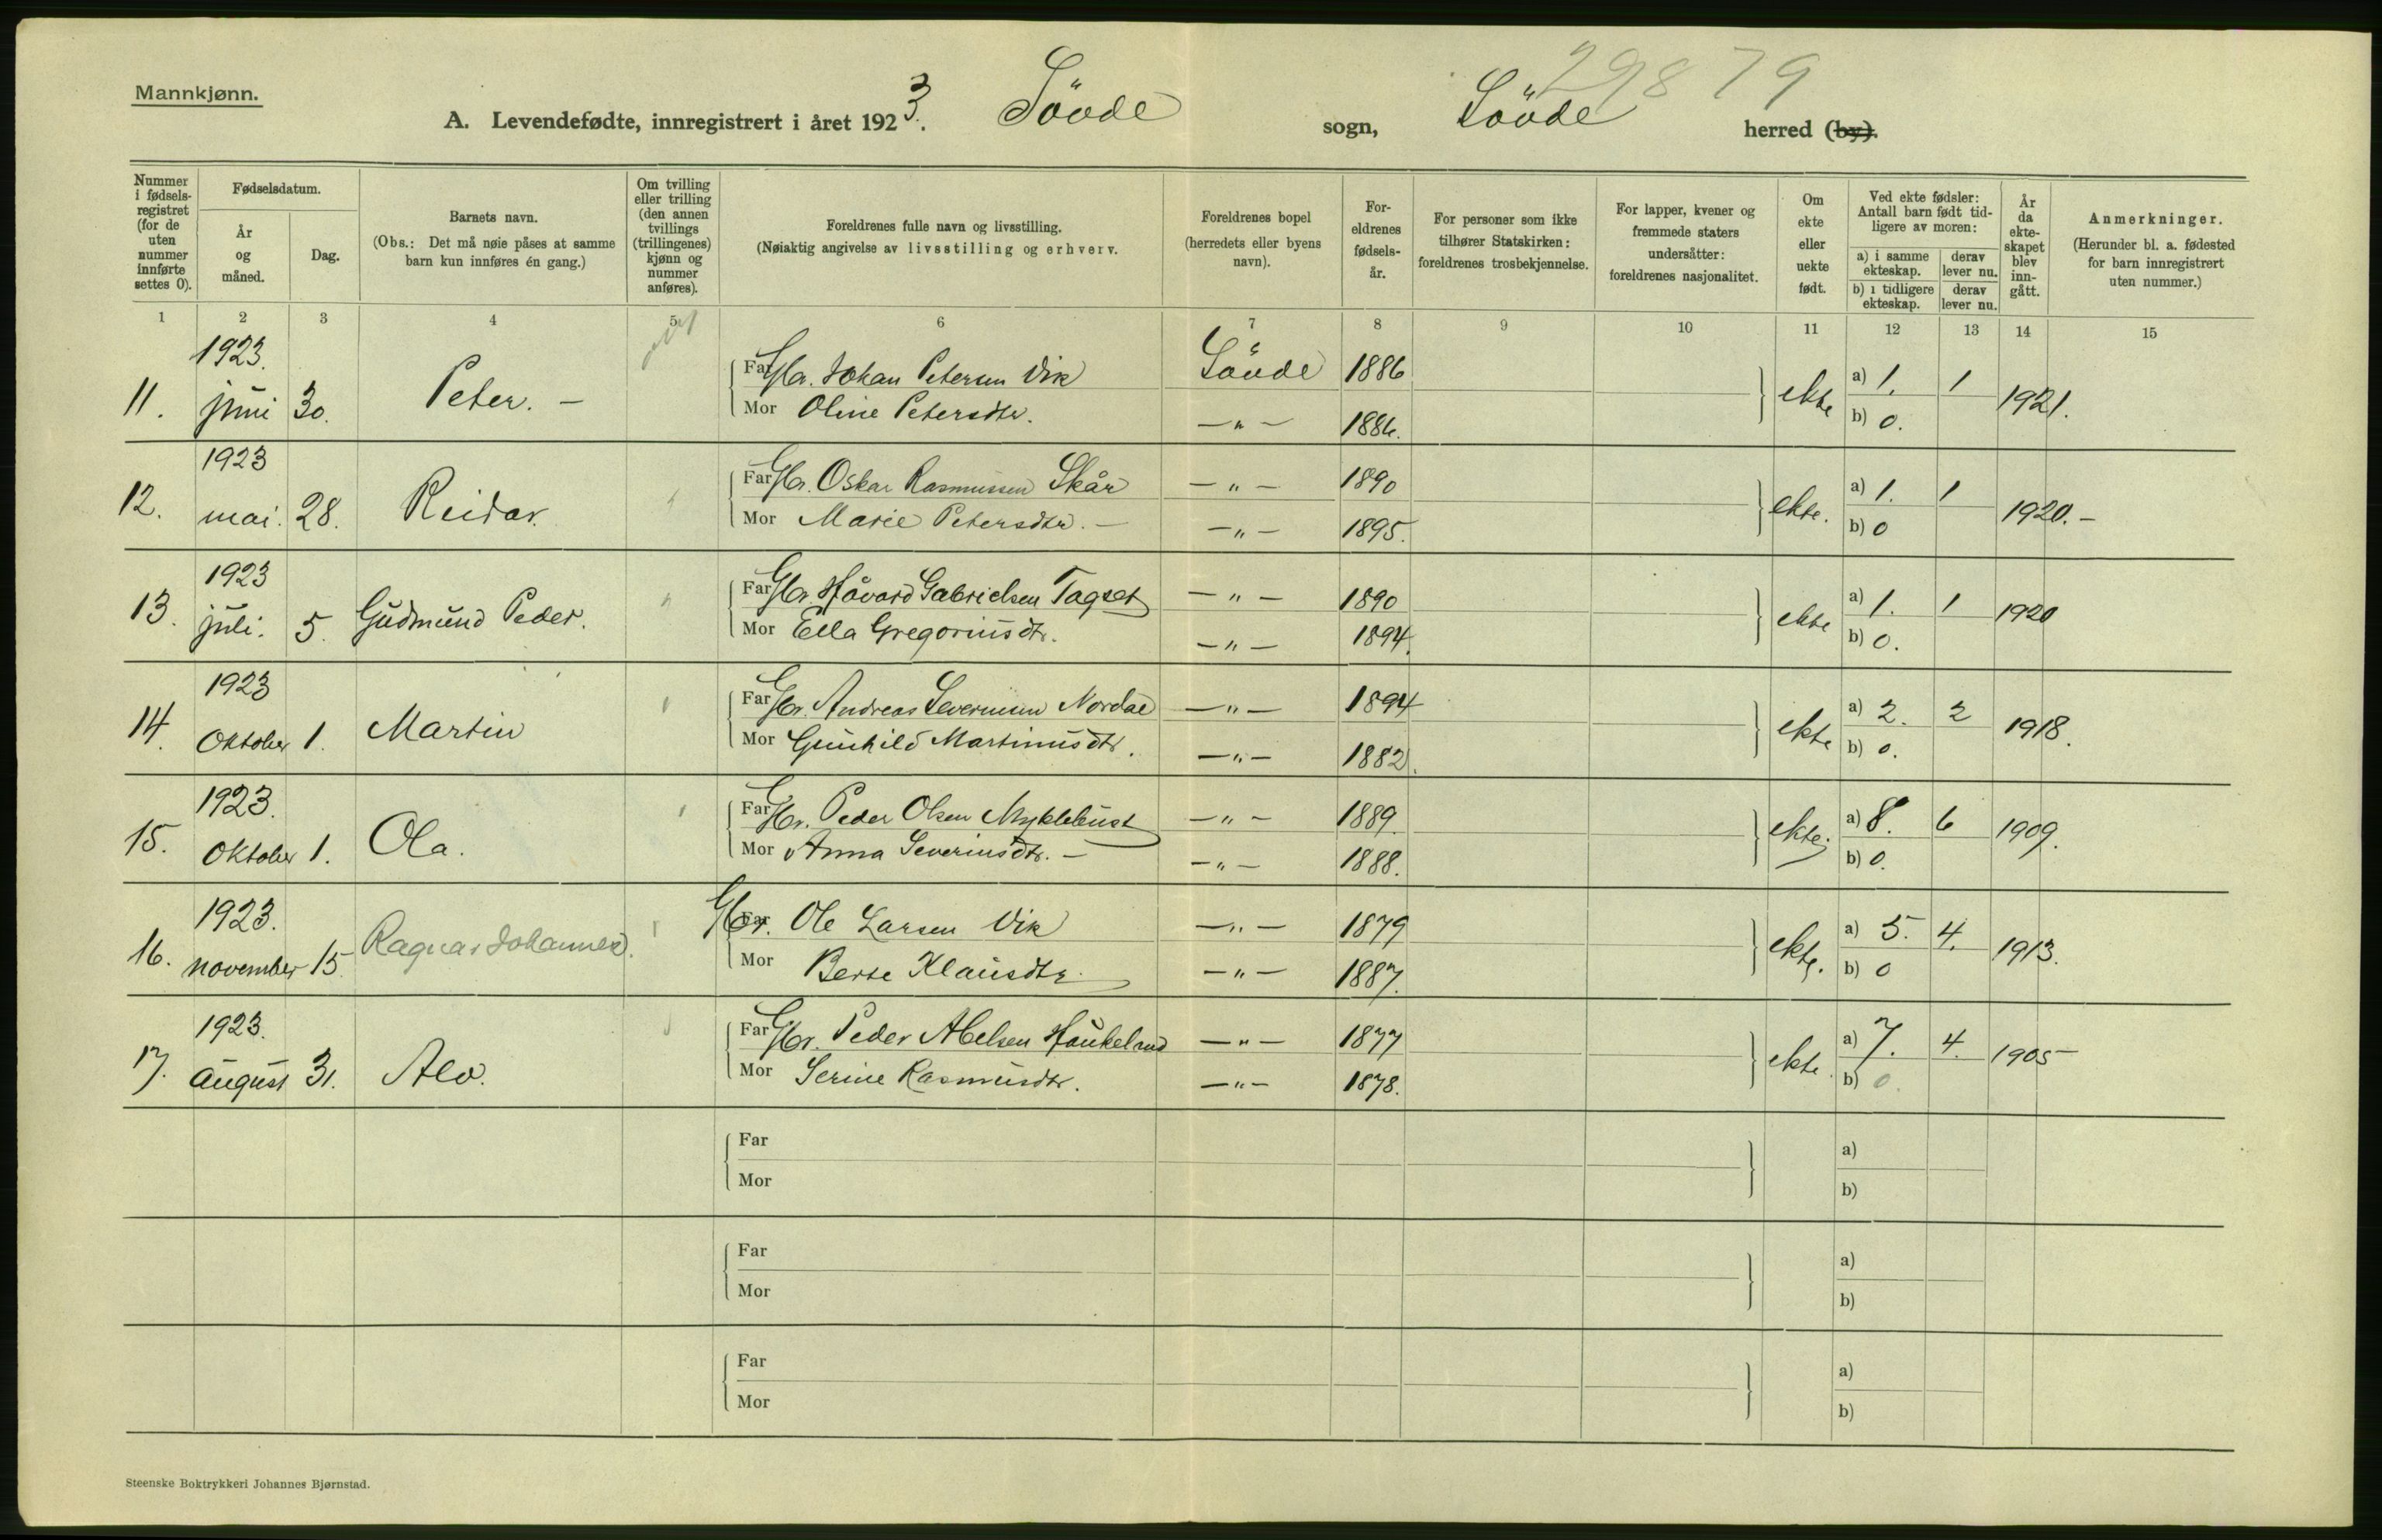 Mannkjønn.
29879
A. Levendefødte, innregistrert i året 1923. Søvde sogn, Søvde herred (by).
Nummer i fødsels-registret (for de uten nummer innførte settes 0).
Fødselsdatum.
År og måned.
Dag.
Barnets navn.
(Obs.: Det må nøie påses at samme barn kun innføres én gang.)
Om tvilling eller trilling (den annen tvillings (trillingenes) kjønn og nummer anføres).
Foreldrenes fulle navn og livsstilling.
(Nøiaktig angivelse av livsstilling og erhverv.
Foreldrenes bopel (herredets eller byens navn).
For-eldrenes fødsels-år.
For personer som ikke tilhører Statskirken: foreldrenes trosbekjennelse.
For lapper, kvener og fremmede staters undersåtter: foreldrenes nasjonalitet.
Om ekte eller uekte født.
Ved ekte fødsler: Antall barn født tid-ligere av moren:
a) i samme ekteskap.
derav lever nu.
b) i tidligere ekteskap.
derav lever nu.
År da ekte-skapet blev inn-gått.
Anmerkninger.
(Herunder bl. a. fødested for barn innregistrert uten nummer.)
1 2 3 4 5 6 7 8 9 10 11 12 13 14 15
1923.
11. juni 30. Peter. —
Far Gbr. Johan Petersen Vik Søvde 1886
Mor Oline Petersdtr. — " — 1886.
ekte a) 1. 1 b) 0. 1921.
1923
12. mai. 28. Reidar.
Far Gbr. Oskar Rasmussen Skår — " — 1890
Mor Marie Petersdtr. — — " — 1895.
ekte. a) 1. 1 b) 0 1920. —
1923
13. juli. 5. Gudmund Peder.
Far Gbr. Håvard Gabrielsen Tagset — " — 1890
Mor Ella Gregoriusdtr. — " — 1894.
ekte a) 1. 1 b) 0. 1920
1923
14. Oktober 1. Martin
Far Gbr. Andreas Severinsen Nordal — " — 1894
Mor Gunhild Martinusdtr. — " — 1882.
ekte a) 2. 2 b) 0. 1918.
1923.
15. Oktober 1. Ola.
Far Gbr. Peder Olsen Myklebust — " — 1889.
Mor Anna Severinsdtr. — — " — 1888.
ekte. a) 8. 6 b) 0. 1909.
1923.
16. november 15. Ragnar Johannes.
Far Gbr. Ole Larsen Vik — " — 1879
Mor Berte Klausdtr. — " — 1887.
ekte. a) 5. 4. b) 0 1913.
1923.
17. august 31. Alv.
Far Gbr. Peder Abelsen Haukeland — " — 1877
Mor Serine Rasmusdtr. — " — 1878.
ekte. a) 7. 4. b) 0. 1905
Far a)
Mor b)
Far a)
Mor b)
Far a)
Mor b)
Steenske Boktrykkeri Johannes Bjørnstad.